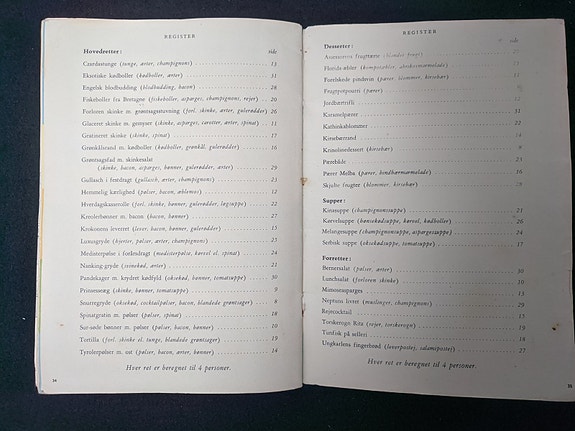 REGISTER
Hovedretter: side
Czardastunge (tunge, ærter, champignons) 13
Eksotiske kødboller (kødboller, ærter) 31
Engelsk blodbudding (blodbudding, bacon) 28
Fiskeboller fra Bretagne (fiskeboller, asparges, champignons, rejer) 20
Forloren skinke m. grøntsagsstuvning (forl. skinke, ærter, gulerødder) 26
Glaceret skinke m. gemyser (skinke, asparges, carotter, ærter, spinat) 11
Gratineret skinke (skinke, spinat) 17
Grønkålsrand m. kødboller (kødboller, grønkål, gulerødder) 16
Grøntsagsfad m. skinkesalat
(skinke, asparges, bønner, gulerødder, ærter) 29
Gullasch i festdragt (gullasch, ærter, champignons) 23
Hemmelig kærlighed (pølser, bacon, æblemos) 12
Hverdagskasserolle (forl. skinke, bønner, gulerødder, løgsuppe) 22
Kreolerbønner m. bacon (bønner) 27
Krokonens leveret (lever, bacon, bønner, gulerødder) 15
Luxusgryde (hjerter, pølser, ærter, champignons) 25
Medisterpølse i forårsdragt (medisterpølse, kørvel el. spinat) 24
Nanking-gryde (svinekød, ærter) 21
Pandekager m. krydret kødfyld (oksekød, bønner, tomatsuppe) 30
Prinsesseæg (skinke, bønner, tomatsuppe) 9
Snurregryde (oksekød, cocktailpølser, bacon, blandede grøntsager) 8
Spinatgratin m. pølser (pølser, spinat) 18
Sur-søde bønner m. pølser (pølser, bacon, bønner) 10
Tortilla (forl. skinke el. tunge, blandede grøntsager) 19
Tyrolerpølser m. ost (pølser, bacon, ærter, bønner) 14
Hver ret er beregnet til 4 personer.
34
REGISTER
Desserter: side
(blandet frugt)
Florida-æbler (kompotæbler, abrikosmarmelade)
Forelskede pindsvin (pærer, blommer, kirsebær)
Frugtpotpourri (pærer)
Jordbærtrifli
Karamelpærer 31
Kathinkablommer 22
Kirsebærrand 14
Krinolinedessert (kirsebær) 8
Pærebåde 23
Pærer Melba (pærer, hindbærmarmelade) 16
Skjulte frugter (blommer, kirsebær) 28
Supper:
Kinasuppe (champignonsuppe) 21
Kørvelsuppe (hønsekødsuppe, kørvel, kødboller) 26
Melangesuppe (champignonsuppe, aspargessuppe) 24
Serbisk suppe (oksekødsuppe, tomatsuppe) 17
Forretter:
Bernersalat (pølser, ærter) 30
Lunchsalat (forloren skinke) 10
Mimoseasparges 13
Neptuns livret (muslinger, champignons) 29
Rejecocktail 15
Torskerogn Rita (rejer, torskerogn) 19
Tunfisk på selleri 18
Ungkarlens fingerbrød (leverpostej, salamipostej) 27
Hver ret er beregnet til 4 personer.